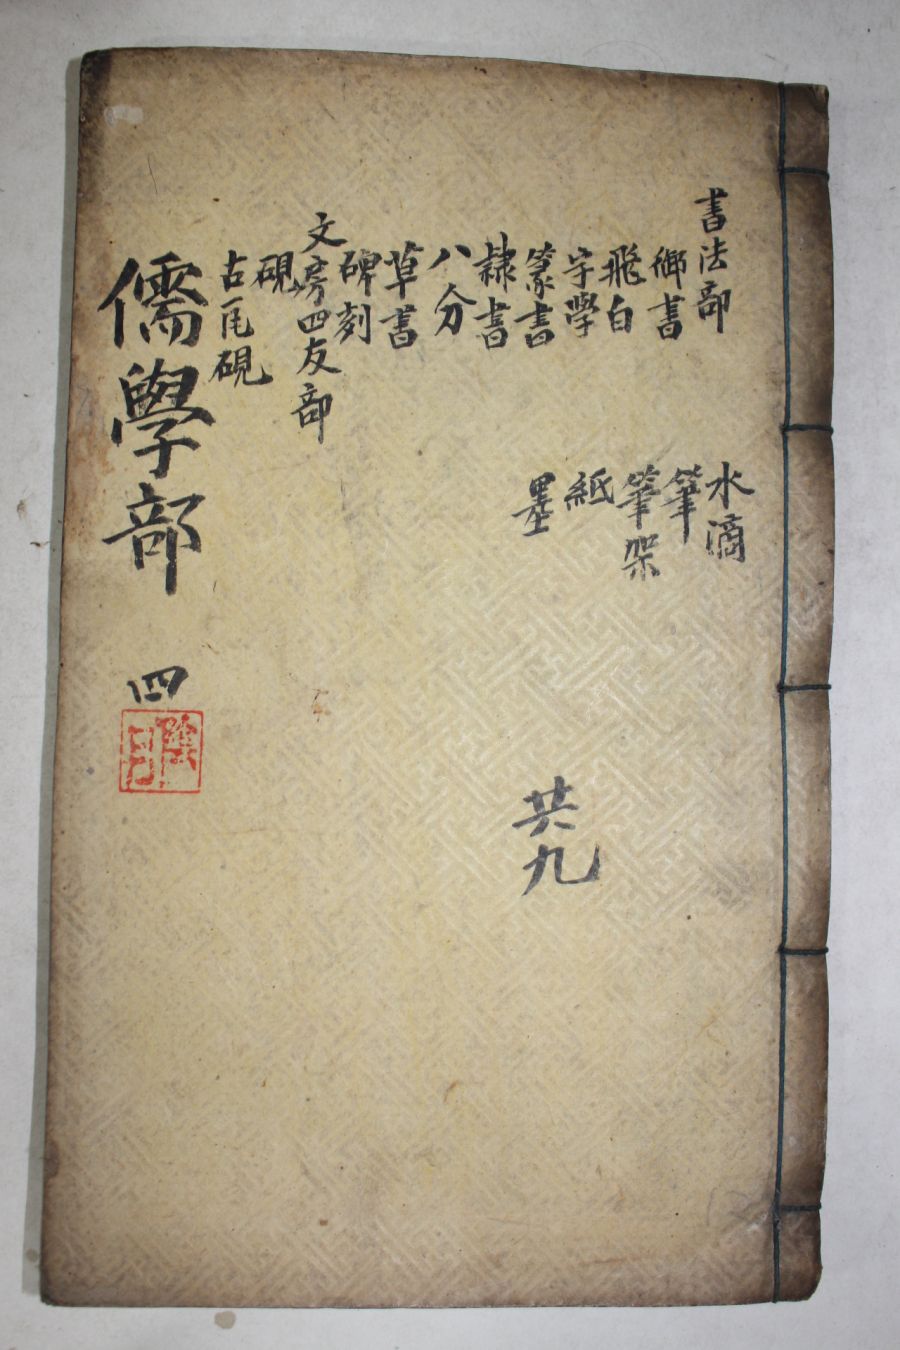 書法部
御書
飛白
字學
篆書
隷書
八分
草書
碑刻
文房四友部
硯
古瓦硯
水滴
筆
筆架
紙
墨
共九
儒學部 四